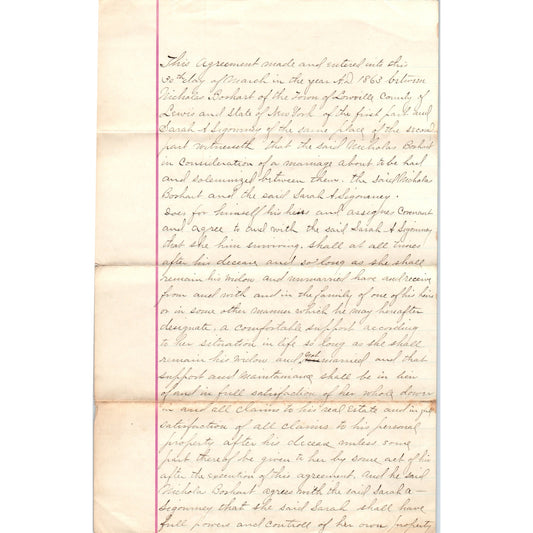 This Agreement made and entered into this
30th day of March in the year A.D 1863 between
Nicholas Boshart of the Town of Lowville County of
Lewis and State of New York of the first part and
Sarah A Sigourney of the same place of the second
part witnesseth that the said Nicholas Boshart
in consideration of a marriage about to be had
and solemnized between them. the said Nicholas
Boshart and the said Sarah A. Sigourney.
Does for himself his heirs and assignes Covenant
and agree to and with the said Sarah A Sigourney
that she him surviving. shall at all times
after his decease and so long as she shall
remain his widow and unmarried have and receive
from and with and in the family of one of his heirs
or in some other manner which he may hereafter
designate, a comfortable support according
to her situation in life so long as she shall
remain his widow and unmarried and that
support and maintainance shall be in lieu
of and in full satisfaction of her whole dower
in and all claims to his real Estate and in full
satisfaction of all claims to his personal
property after his decease unless some
part thereof be given to her by some act of his
after the execution of this agreement. And he said
Nichola Boshart agrees with the said Sarah A
Sigourney that she said Sarah shall have
full powers and controll of her own property